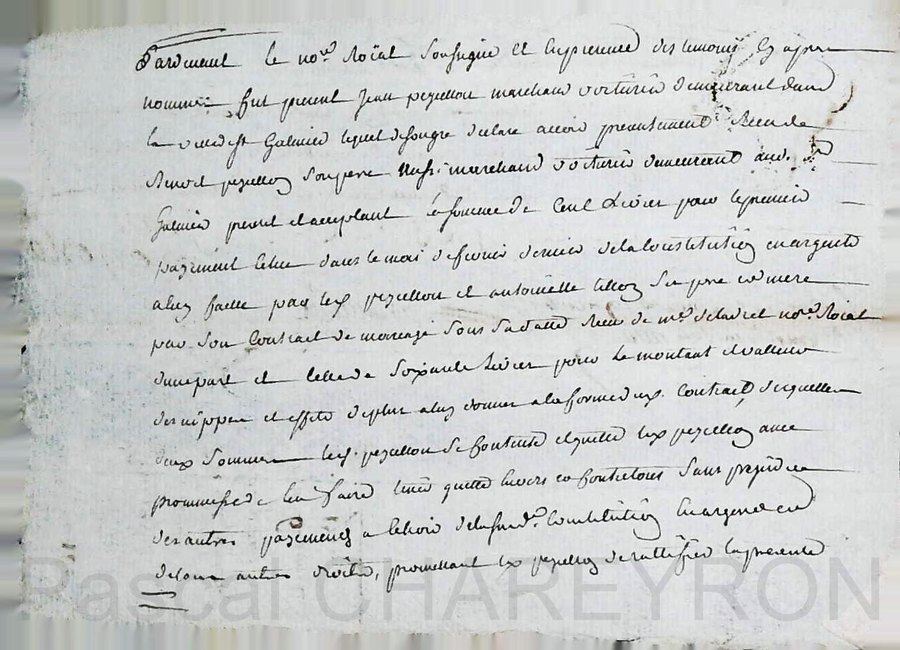 Pardevant le no.re Roïal Soussigné et En presence des temoins Cy apres
nommés fut present Jean peyrellon marchand voiturier demeurant dans
la ville de St Galmier lequel de son gré declare avoir presentement Receu de
Benoit peyrellon Son pere Aussi marchand voiturier demeurant aud. St
Galmier present et acceptant la somme de Cent Livres pour le premier
payement échu dans le mois de fevrier dernier de la Constitution en argent
a luy faitte par led. peyrellon et antoinette Ses pere et mere
par Son Contract de mariage Sous Sa datte Receu de me. no.re Roïal
d'une part et Celle de Soixante Livres pour le montant et valleur
des nippes et effets de plus a luy donnés a la forme dud. Contract, desquelles
deux Sommes led. peyrellon Se Contente et quitte led. peyrellon avec
promesse de l'en faire tenir quitte Envers et Contre tous Sans prejudice
des autres payements a Echoir de la Susd.e Constitution En argent et
de tous autres droits, promettant led. peyrellon de rattiffier la presente
Pascal CHAREYRON